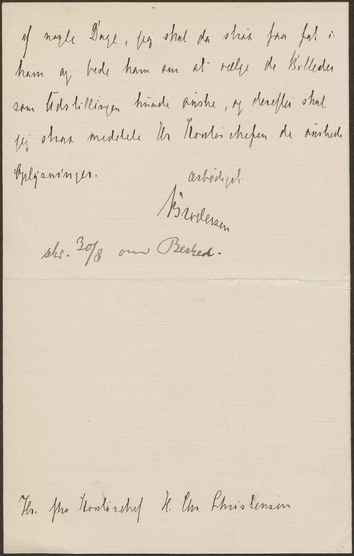 af nogle Dage, jeg skal da straa faa fat i
ham og bede ham om at vælge de Billeder
som Udstillingen kunde ønske, og derefter skal
jeg straa meddele Hr Kontorchefen de ønskede
Oplysninger.
ærbødigst
Brodersen
skr. 30/8 om Besked.
Hr. Kontorchef H. Chr. Christensen